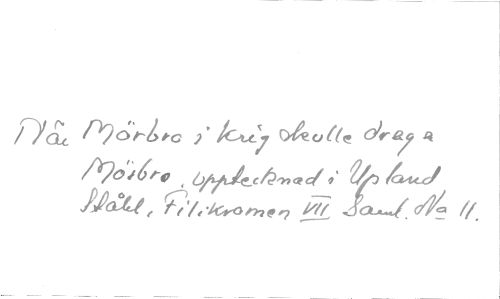 När Mörbro i krig skulle draga
Mörbro, upptecknad i Upland
Ståhl, Filikromen VII Saml. No 11.